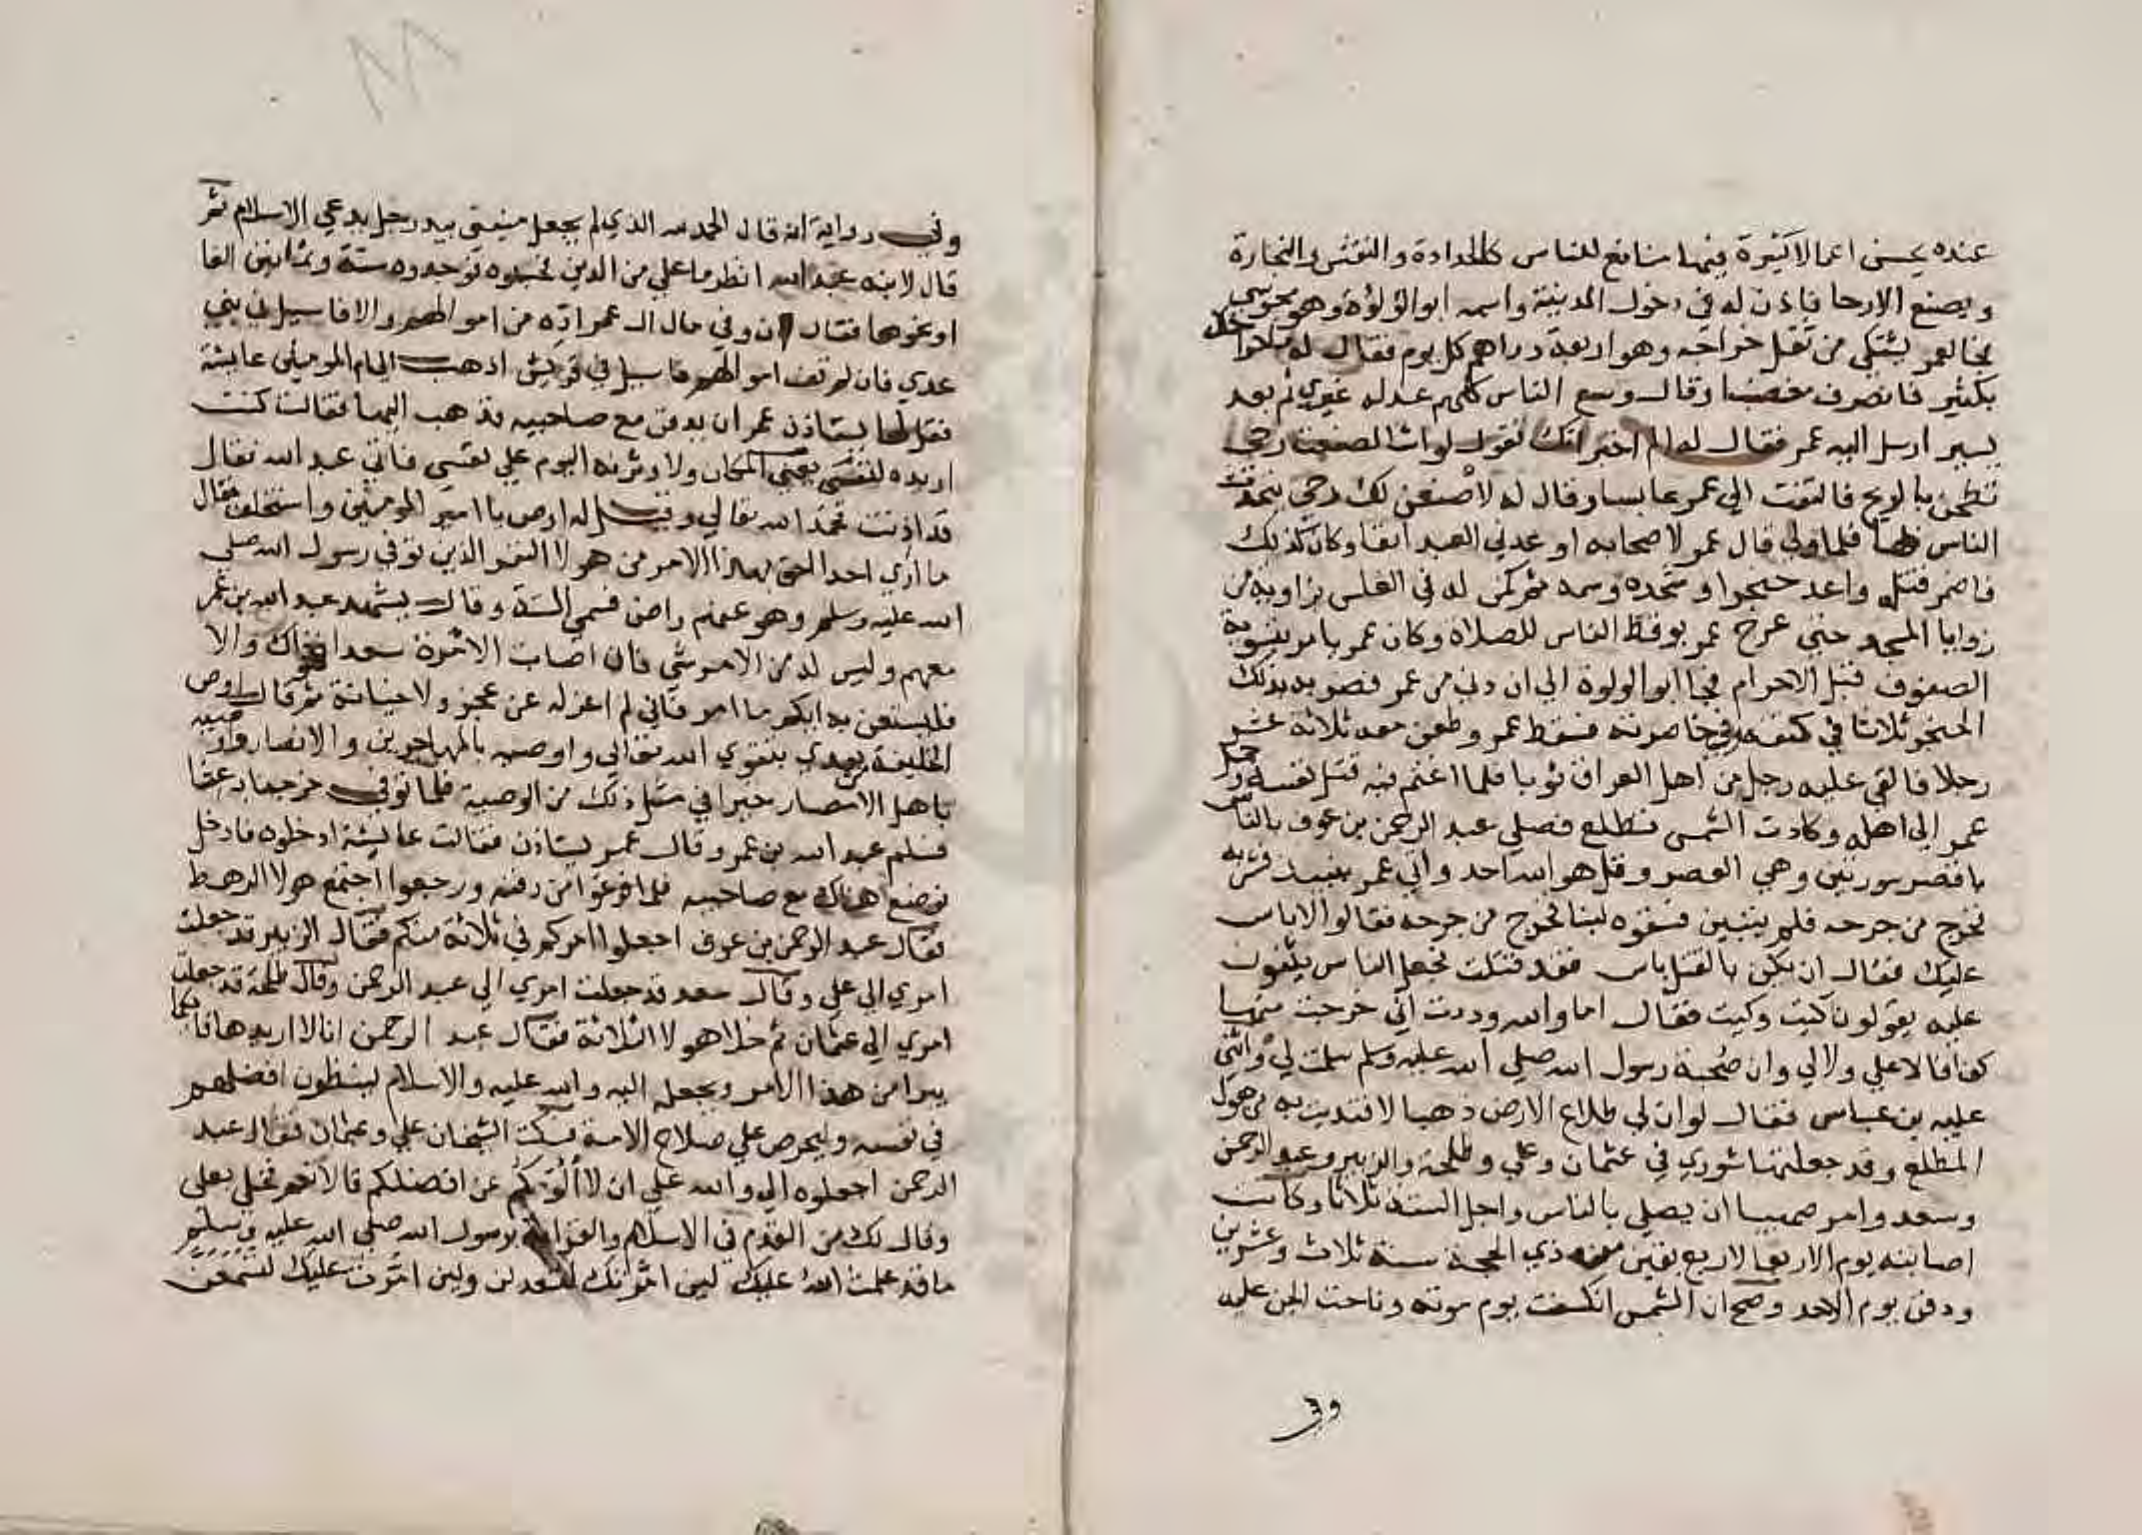 عنده يحسن اعمالا كثيرة فيها منافع للناس كالحدادة والنقش والنجارة
ويصنع الارحا فاذن له في دخول المدينة واسمه ابو لؤلؤة وهو مجوسي
فجا لعمر يشتكي من ثقل خراجه وهو اربعة دراهم كل يوم فقال له ما خراجك
بكثير فانصرف مغضبا وقال وسع الناس كلهم عدله غيري ثم بعد
يسير ارسل اليه عمر فقال له الم اخبر انك تقول لو اشا لصنعت رحى
تطحن بالريح فالتفت الي عمر عابسا وقال له لاصنعن لك رحى يتحدث
الناس بها فلما ولي قال عمر لاصحابه اوعدني العبد انفا وكان كذلك
فاضمر قتله واعد خنجرا وشحذه وسمه ثم كمن له في الغلس بزاوية من
زوايا المسجد حتى خرج عمر يوقظ الناس للصلاة وكان عمر يامر بتسوية
الصفوف قبل الاحرام فجا ابو لولوة الي ان دني من عمر فضربه بذلك
الخنجر ثلاثا في كتفه وفي خاصرته فسقط عمر وطعن معه ثلاثة عشر
رجلا فالقي عليه رجل من اهل العراق ثوبا فلما اغتم فيه قتل نفسه وحمل
عمر الي اهله وكادت الشمس تطلع فصلي عبد الرحمن بن عوف بالناس
باقصر سورتين وهي العصر وقل هو الله احد واتي عمر بنبيذ فشربه
فخرج من جرحه فلم يتبين فسقوه لبنا فخرج من جرحه فقالوا لا باس
عليك فقال ان يكن بالقتل باس فقد قتلت فجعل الناس يثنون
عليه يقولون كيت وكيت فقال اما والله وددت اني خرجت منها
كفافا لا علي ولا لي وان صحبة رسول الله صلي الله عليه وسلم سلمت لي واثنى
عليه بن عباس فقال لو ان لي طلاع الارض ذهبا لافتديت به من هول
المطلع وقد جعلتها شوري في عثمان وعلي وطلحة والزبير وعبد الرحمن
وسعد وامر صهيبا ان يصلي بالناس واجل الستة ثلاثا وكانت
اصابته يوم الاربعا لاربع بقين من ذي الحجة سنة ثلاث وعشرين
ودفن يوم الاحد وصح ان الشمس انكسفت يوم موته وناحت الجن عليه
وفي
وفي رواية انه قال الحمد لله الذي لم يجعل منيتي بيد رجل يدعي الاسلام ثم
قال لابنه عبد الله انظر ما علي من الدين فحسبوه فوجدوه ستة وثمانين الفا
او نحوها فقال ان وفي مال ال عمر اده من اموالهم والا فاسيل في بني
عدي فان لم تف اموالهم فاسيل في قريش اذهب الي ام المومنين عايشة
فقل لها يستاذن عمر ان يدفن مع صاحبيه فذهب اليها فقالت كنت
اريده لنفسي يعني المكان ولاوثرنه اليوم علي نفسي فاتي عبد الله فقال
قد اذنت فحمد الله تعالي وقيل له اوص يا امير المومنين واستخلف فقال
ما اري احدا احق بهذا الامر من هولا النفر الذين توفي رسول الله صلي
الله عليه وسلم وهو عنهم راض فسمي الستة وقال يشهد عبد الله بن عمر
معهم وليس له من الامر شي فان اصابت الامرة سعدا فهو ذاك والا
فليستعن به ايكم ما امر فاني لم اعزله عن عجز ولا خيانة ثم قال اوصي
الخليفة من بعدي بتقوي الله تعالي واوصيه بالمهاجرين والانصار واوصيه
باهل الامصار خيرا في مثل ذلك من الوصية فلما توفي خرجنا به
فسلم عبد الله بن عمر وقال عمر يستاذن فقالت عايشة ادخلوه فادخل
فوضع هناك مع صاحبيه فلما فرغوا من دفنه ورجعوا اجتمع هولا الرهط
فقال عبد الرحمن بن عوف اجعلوا امركم في ثلاثة منكم فقال الزبير قد جعلت
امري الي علي وقال سعد قد جعلت امري الي عبد الرحمن وقال طلحة قد جعلت
امري الي عثمان ثم خلا هولا الثلاثة فقال عبد الرحمن انا لا اريدها فايكما
يبرا من هذا الامر ونجعله اليه والله عليه والاسلام لينظرن افضلهم
في نفسه وليحرص علي صلاح الامة فسكت الشيخان علي وعثمان فقال عبد
الرحمن اجعلوه الي والله علي ان لا الوكم عن افضلكم قالا نعم فخلي بعلي
وقال لك من القدم في الاسلام والقرابة برسول الله صلي الله عليه وسلم
ما قد علمت الله عليك لين امرتك لتعدلن ولين امرت عليك لتسمعن